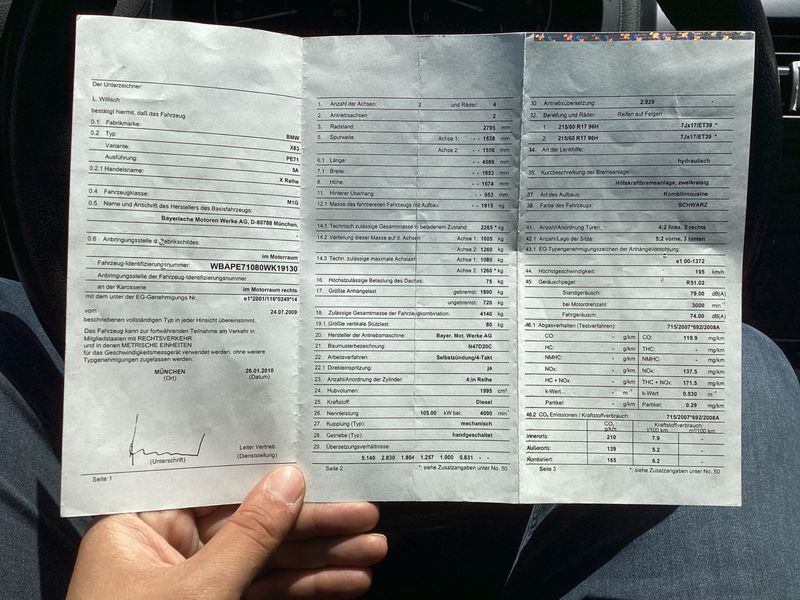 Der Unterzeichner:
L. Willisch
bestätigt hiermit, daß das Fahrzeug
0.1 Fabrikmarke: BMW
0.2 Typ X83
Variante: PE71
Ausführung: 5A
0.2.1 Handelsname: X Reihe
0.4 Fahrzeugklasse: M1G
0.5 Name und Anschrift des Herstellers des Basisfahrzeugs:
Bayerische Motoren Werke AG, D-80788 München,
0.6 Anbringungsstelle d. Fabrikschildes:
im Motorraum
Fahrzeug-Identifizierungsnummer: WBAPE71080WK19130
Anbringungsstelle der Fahrzeug-Identifizierungsnummer
an der Karosserie im Motorraum rechts
mit dem unter der EG-Genehmigungs Nr. e1*2001/116*0249*14
vom 24.07.2009
beschriebenen vollständigen Typ in jeder Hinsicht übereinstimmt.
Das Fahrzeug kann zur fortwährenden Teilnahme am Verkehr in
Mitgliedstaaten mit RECHTSVERKEHR
und in denen METRISCHE EINHEITEN
für das Geschwindigkeitsmessgerät verwendet werden, ohne weitere
Typgenehmigungen zugelassen werden.
MÜNCHEN 26.01.2010
(Ort) (Datum)
Leiter Vertrieb
(Unterschrift) (Dienststellung)
Seite 1
1. Anzahl der Achsen: 2 und Räder: 4
2. Antriebsachsen: 2
3. Radstand: 2795 mm
5. Spurweite Achse 1: - - 1538 mm
Achse 2: - - 1556 mm
6.1 Länge: - - 4569 mm
7.1 Breite: - - 1853 mm
8. Höhe: - - 1674 mm
11. Hinterer Überhang: - - 953 mm
12.1 Masse des fahrbereiten Fahrzeugs mit Aufbau - - 1815 kg
14.1 Technisch zulässige Gesamtmasse in beladenem Zustand: 2265 * kg
14.2 Verteilung dieser Masse auf d. Achsen: Achse 1: 1005 kg
Achse 2: 1260 kg
14.3 Techn. zulässige maximale Achslast: Achse 1: 1080 kg
Achse 2: 1260 * kg
16. Höchstzulässige Belastung des Daches: 75 kg
17. Größte Anhängelast gebremst: 1800 kg
ungebremst: 720 kg
18. Zulässige Gesamtmasse der Fahrzeugkombination: 4140 kg
19.1 Größte vertikale Stützlast: 80 kg
20. Hersteller der Antriebsmaschine: Bayer. Mot. Werke AG
21. Baumusterbezeichnung: N47D20C
22. Arbeitsverfahren: Selbstzündung/4-Takt
22.1 Direkteinspritzung: ja
23. Anzahl/Anordnung der Zylinder: 4;in Reihe
24. Hubvolumen: 1995 cm³
25. Kraftstoff: Diesel
26. Nennleistung 105.00 kW bei 4000 min-1
27. Kupplung (Typ): mechanisch
28. Getriebe (Typ): handgeschaltet
29. Übersetzungsverhältnisse:
5.140 2.830 1.804 1.257 1.000 0.831 - -
Seite 2 *: siehe Zusatzangaben unter No. 50
30. Antriebsübersetzung: 2.929 -
32. Bereifung und Räder: Reifen auf Felgen
1: 215/60 R17 96H 7Jx17/ET39 *
2: 215/60 R17 96H 7Jx17/ET39 *
34. Art der Lenkhilfe:
hydraulisch
35. Kurzbeschreibung der Bremsanlage:
Hilfskraftbremsanlage, zweikreisig
37. Art des Aufbaus: Kombilimousine
38. Farbe des Fahrzeugs: SCHWARZ
41. Anzahl/Anordnung Türen: 4;2 links, 2 rechts
42.1 Anzahl/Lage der Sitze: 5;2 vorne, 3 hinten
43.1 EG-Typengenehmigungszeichen der Anhängevorrichtung:
e1 00-1372
44. Höchstgeschwindigkeit: 195 km/h
45. Geräuschpegel: R51.02
Standgeräusch: 79.00 dB(A)
bei Motordrehzahl: 3000 min-1
Fahrgeräusch: 74.00 dB(A)
46.1 Abgasverhalten (Testverfahren): 715/2007*692/2008A
CO: - g/km CO: 119.9 mg/km
HC: - g/km THC: - mg/km
NMHC: - g/km NMHC: - mg/km
NOx: - g/km NOx: 137.5 mg/km
HC + NOx: - g/km THC + NOx: 171.5 mg/km
k-Wert - m-1 k-Wert 0.530 m-1
Partikel: - g/km Partikel: 0.29 mg/km
46.2 CO2 Emissionen / Kraftstoffverbrauch: 715/2007*692/2008A
CO2: Kraftstoffverbrauch:
g/km l/100 km m³/100 km
Innerorts: 210 7.9 -
Außerorts: 139 5.2 -
Kombiniert: 165 6.2 -
Seite 3 *: siehe Zusatzangaben unter No. 50